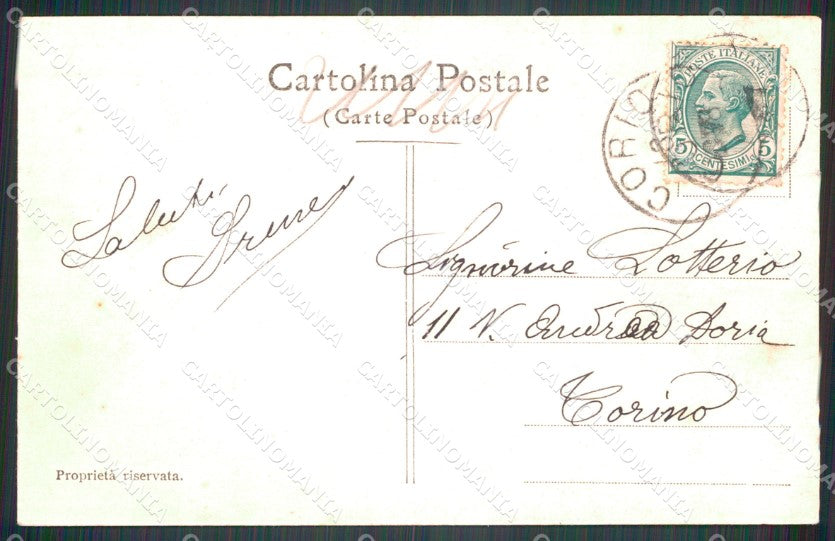 Cartolina Postale
(Carte Postale)
POSTE ITALIANE
5 CENTESIMI 5
CORIO
Saluti
Irene
Signorine Lotterio
11 V. Andrea Doria
Torino
Proprietà riservata.
CARTOLINOMANIA